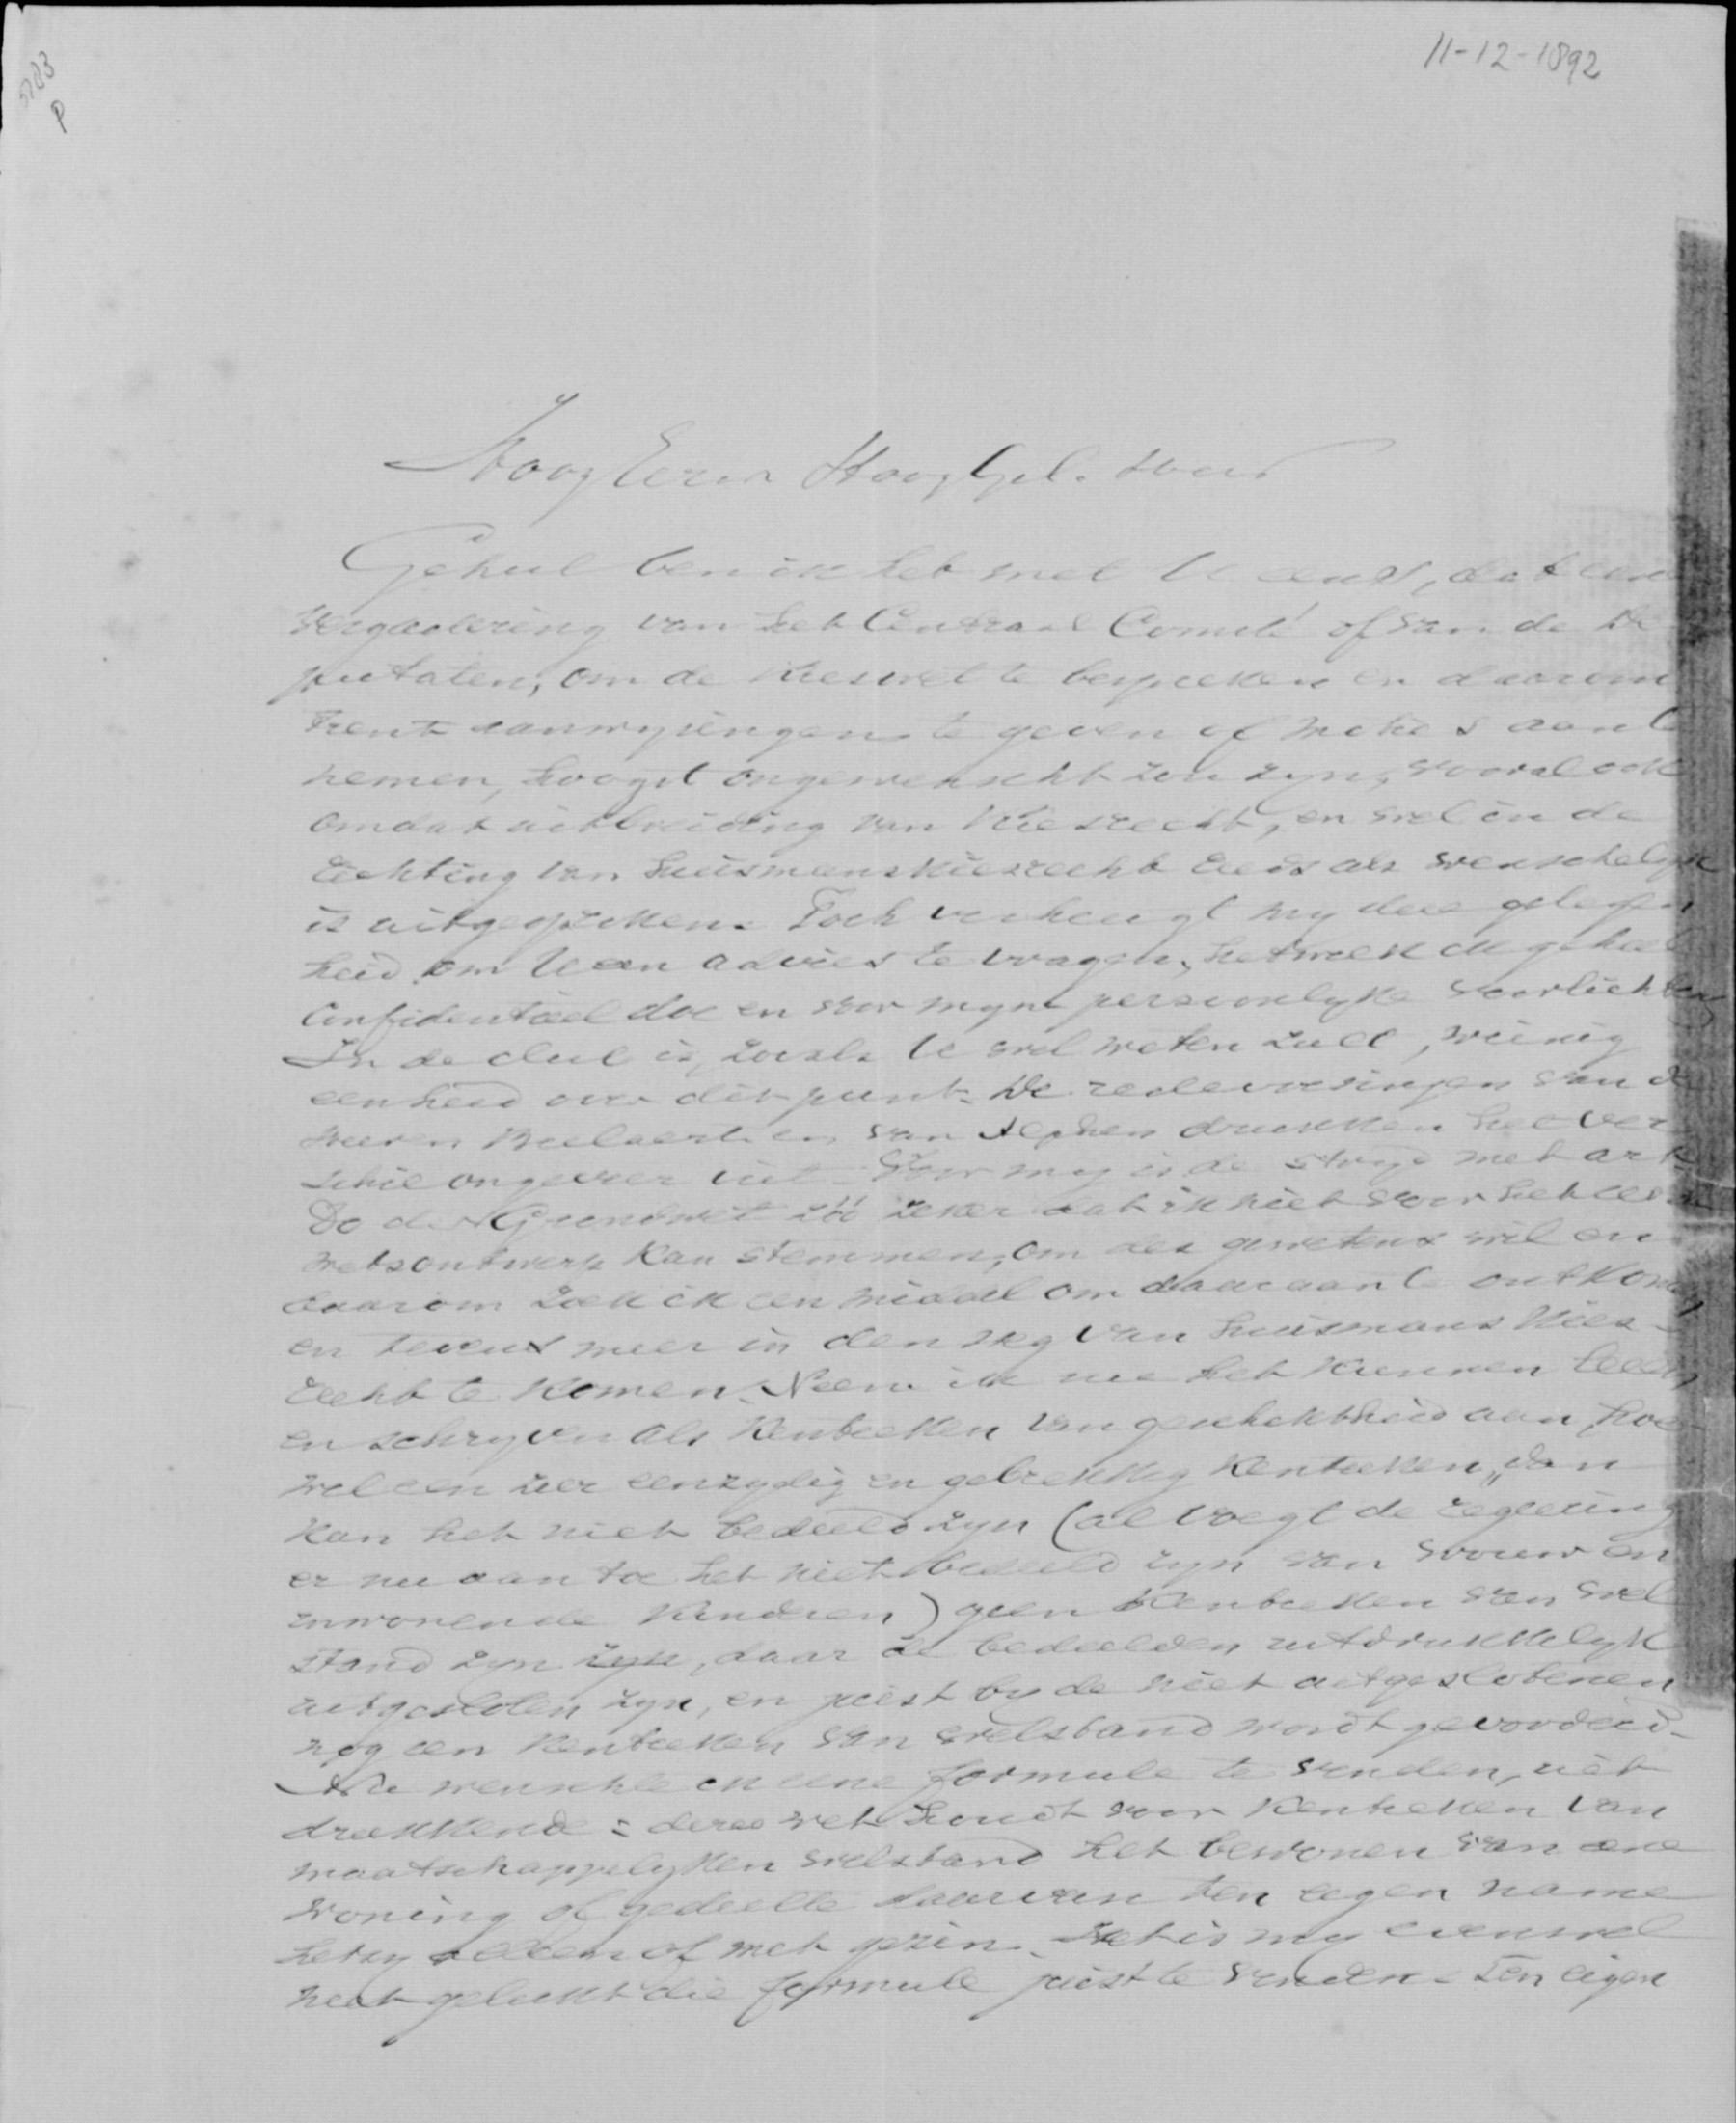 11-12-1892
5283
P
HoogEerw HoogGel. Heer
Geheel ben ik het met U eens, dat eene
vergadering van het Centraal Comité of van de De
putaten, om de Kieswet te bespreken en daarom
trent aanwyzingen te geven of moties aan te
nemen, hoogst ongewenscht zou zyn, vooral ook
omdat uitbreiding van Kiesrecht, en wel in de
richting van huismanskiesrecht reeds als wenschelyk
is uitgesproken. Toch verheugt my deze gelegen
heid om U een advies te vragen, hetwelk ik geheel
Confidentieel doe en voor myne persoonlyke voorlichting
In de club is, zooals U wel weten zult, weinig
eenheid over dit punt. De redevoeringen van de
heeren Beelaerts en van Alphen drukken het ver
schil ongeveer uit. Voor my is de stryd met art
80 der Grondwet zóó zeker dat ik niet voor het
wetsontwerp kan stemmen, om des gewetens wil en
daarom zoek ik een middel om daaraan te ontkomen
en tevens meer in den weg van huismans Kies-
recht te komen. Neem ik nu het kunnen lezen
en schryven als Kenteeken van geschiktheid aan, hoe-
wel een zeer eenzydig en gebrekkig Kenteeken, dan
kan het niet bedeeld zyn (al voegt de regeering
er nu aan toe het niet bedeeld zyn van vrouw en
inwonende Kinderen) geen Kenteeken van wel
stand zyn zyn, daar de bedeelden uitdrukkelyk
uitgesloten zyn, en juist by de niet uitgeslotenen
nog een Kenteeken van welstand wordt gevorderd.
Nu wenschte ik eene formule te vinden, uit
drukkende: deze wet houdt voor Kenteeken van
maatschappelyken welstand het bewonen van eene
woning of gedeelte daarvan ten eigen name
hetzy alleen of met gezin. Het is my evenwel
niet gelukt die formule juist te vinden. Ten eigen